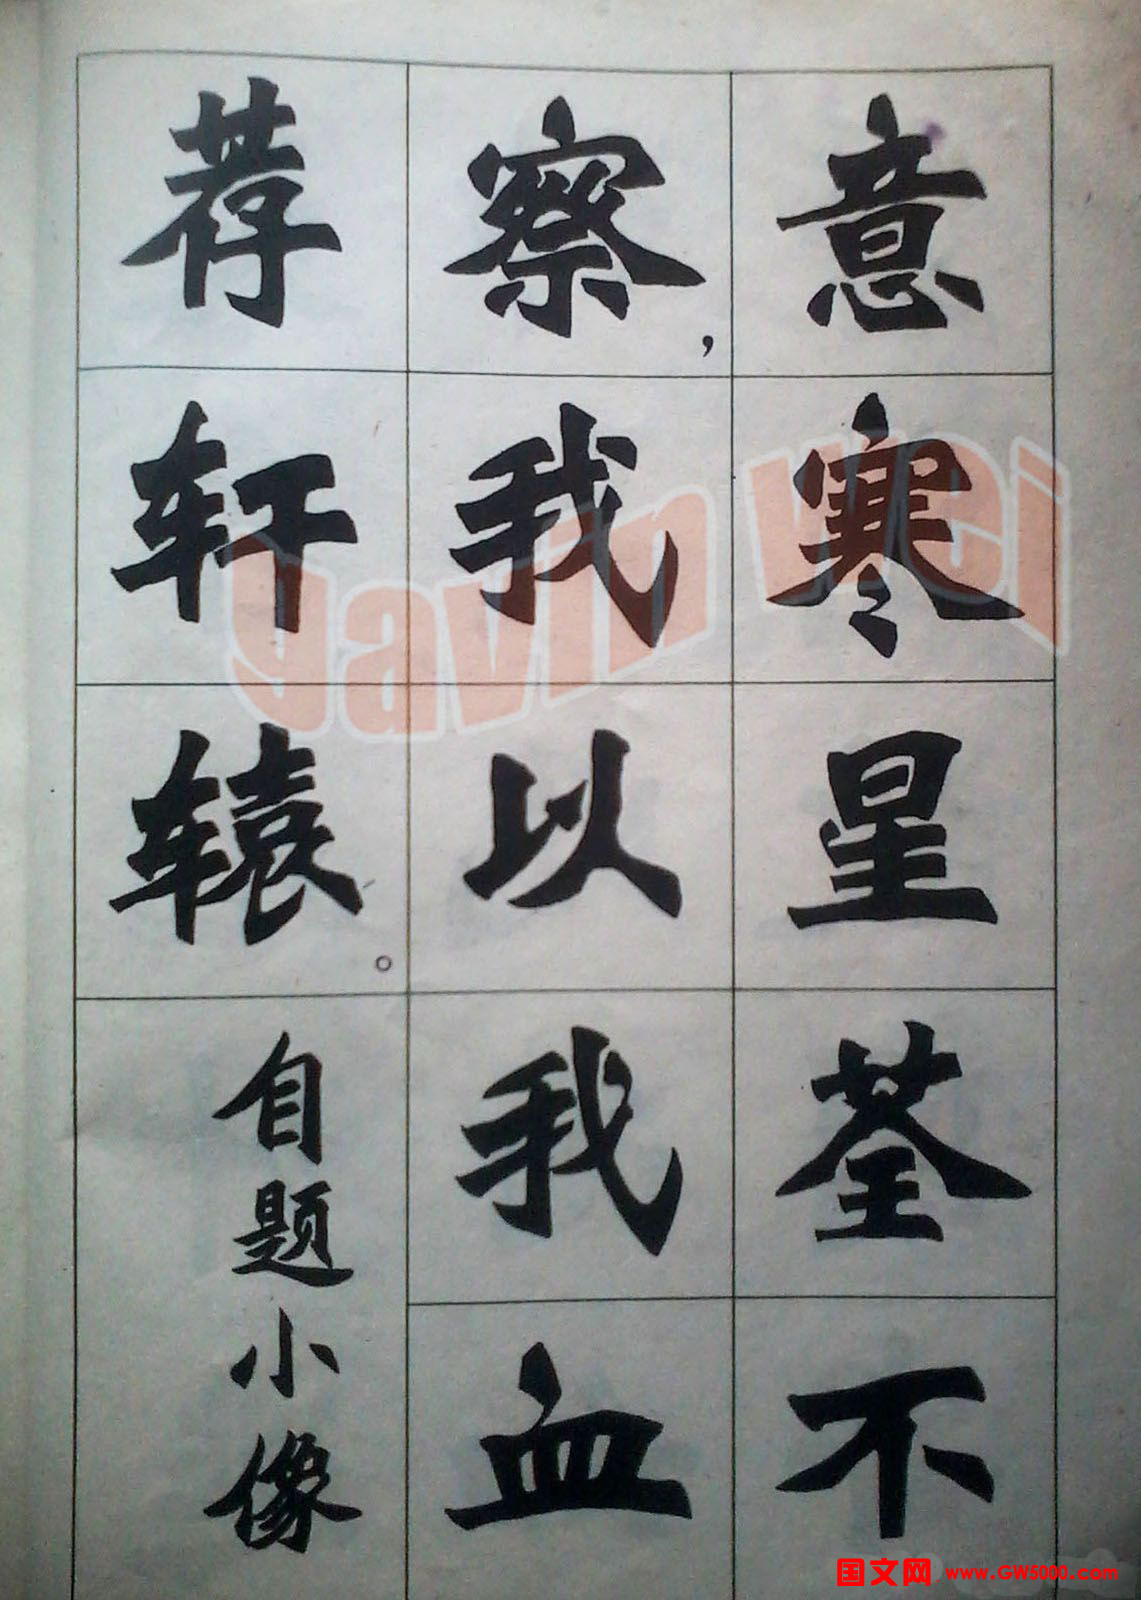 意寒星荃不
察,我以我血
荐轩辕。
自题小像
yavin wei
国文网 www.GW5000.com